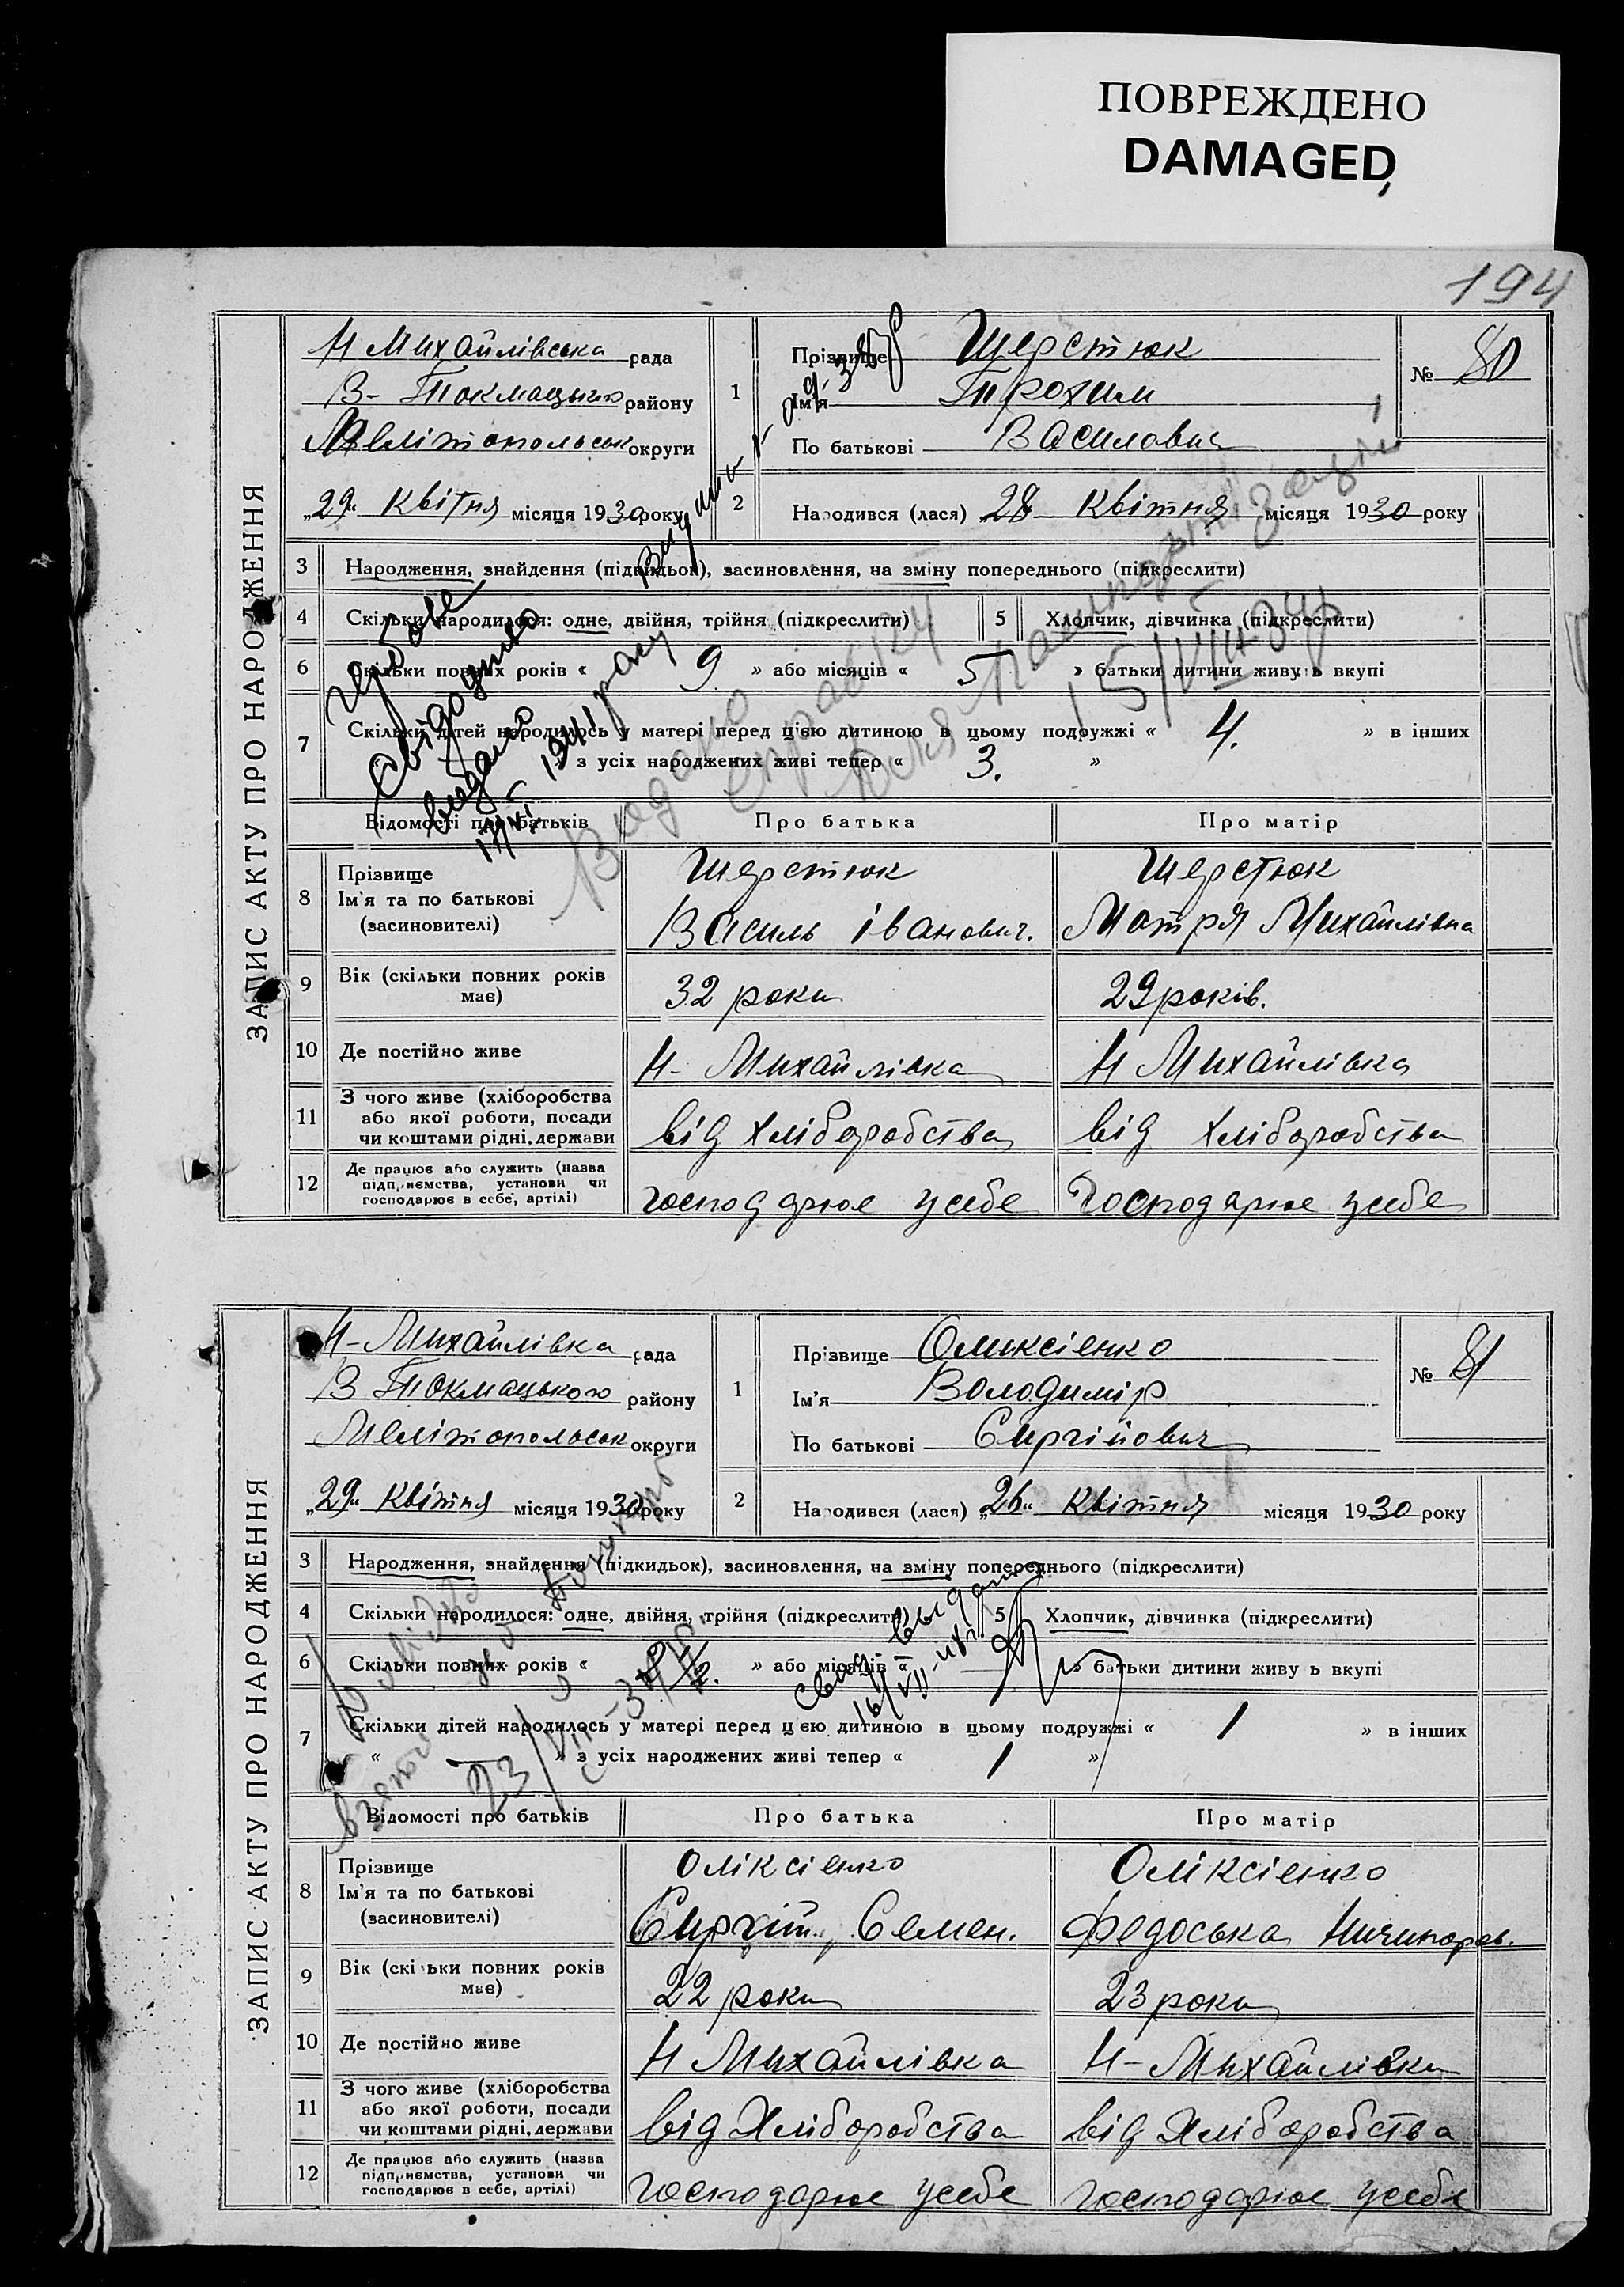 ПОВРЕЖДЕНО
DAMAGED
194
ЗАПИС АКТУ ПРО НАРОДЖЕННЯ
Н Михайлівська рада
В-Токмацького району
Мелітопольськ округи
„29" Квітня місяця 1930 року
1
Прізвище Шерстюк
Ім'я Трохим
По батькові Василович
№ 80
2
Народився (лася) „28 Квітня місяця 1930 року
3 Народження, знайдення (підкидьок), засиновлення, на зміну попереднього (підкреслити)
4 Скільки народилося: одне, двійня, трійня (підкреслити) 5 Хлопчик, дівчинка (підкреслити)
6 Скільки повних років « 9 » або місяців « 5 » батьки дитини живуть вкупі
7 Скільки дітей народилось у матері перед цією дитиною в цьому подружжі « 4. » в інших
« » з усіх народжених живі тепер « 3. »
Свідоцтво
видано
1941 року
Видано
справку
для паспортизації
15/VIII-34р
Відомості про батьків Про батька Про матір
8 Прізвище
Ім'я та по батькові
(засиновителі)
Шерстюк
Василь Іванович.
Шерстюк
Мотря Михайлівна
9 Вік (скільки повних років має) 32 роки 29 років.
10 Де постійно живе Н-Михайлівка Н Михайлівка
11 З чого живе (хліборобства
або якої роботи, посади
чи коштами рідні, держави
від хліборобства від хліборобства
12 Де працює або служить (назва
підприємства, установи чи
господарює в себе, артілі)
господарює усебе господарює усебе
ЗАПИС АКТУ ПРО НАРОДЖЕННЯ
Н-Михайлівка рада
В Токмацького району
Мелітопольськ округи
„29" Квітня місяця 1930 року
1
Прізвище Оликсієнко
Ім'я Володимір
По батькові Сиргійович
№ 81
2
Народився (лася) „26" Квітня місяця 1930 року
3 Народження, знайдення (підкидьок), засиновлення, на зміну попереднього (підкреслити)
4 Скільки народилося: одне, двійня, трійня (підкреслити) 5 Хлопчик, дівчинка (підкреслити)
6 Скільки повних років « » або місяців « » батьки дитини живуть вкупі
7 Скільки дітей народилось у матері перед цією дитиною в цьому подружжі « 1 » в інших
« — » з усіх народжених живі тепер « 1 »
23/VII-34
Відомості про батьків Про батька Про матір
8 Прізвище
Ім'я та по батькові
(засиновителі)
Оліксієнко
Сиргій Семен.
Оліксієнко
Федоська Ничипоров.
9 Вік (скільки повних років має) 22 роки 23 роки
10 Де постійно живе Н Михайлівка Н-Михайлівка
11 З чого живе (хліборобства
або якої роботи, посади
чи коштами рідні, держави
від Хліборобства від Хліборобства
12 Де працює або служить (назва
підприємства, установи чи
господарює в себе, артілі)
господарює усебе господарює усебе